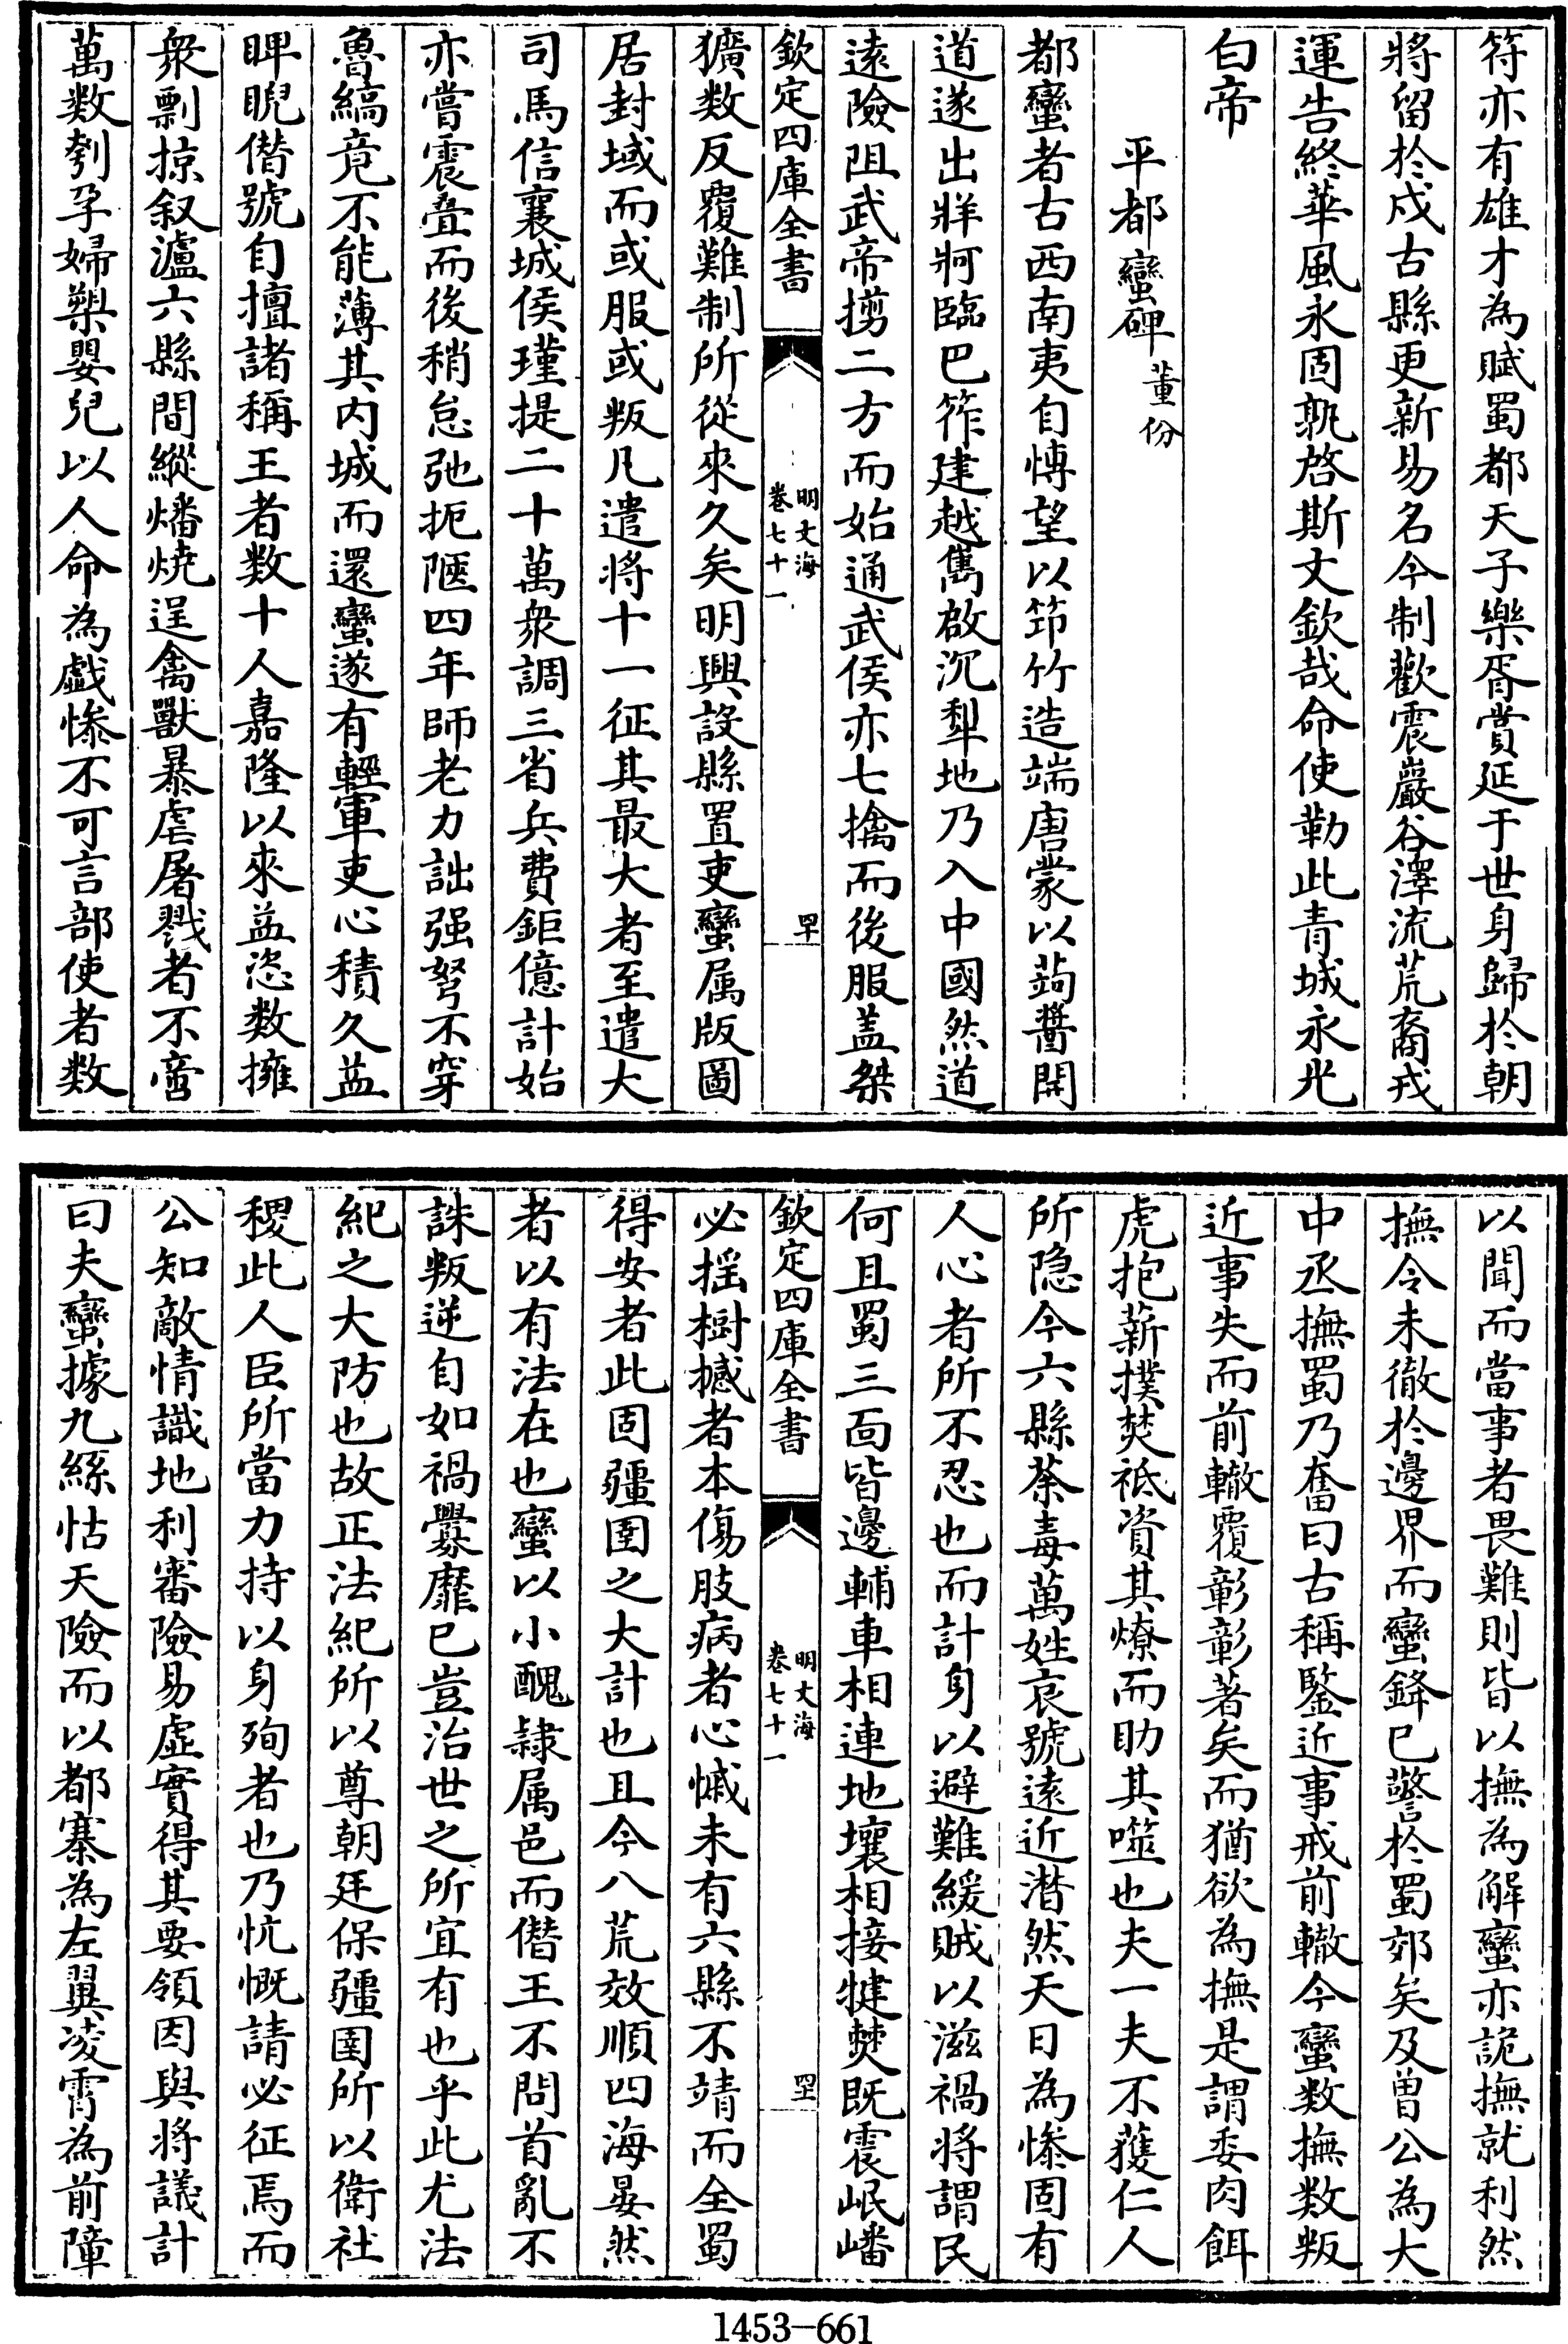 符亦有雄才為賦蜀都天子樂胥賞延于世身歸於朝
將留於戍古縣更新易名今制歡震巖谷澤流荒裔戎
運告終華風永固孰啓斯文欽哉命使勒此青城永光
白帝
平都蠻碑 董份
都蠻者古西南夷自慱望以笻竹造端唐蒙以蒟醬開
道遂出牂牁臨巴筰建越雋啟沉犁地乃入中國然道
遠險阻武帝揃二方而始通武侯亦七擒而後服盖桀
欽定四庫全書 明文海 卷七十一 罕
獷数反覆難制所從來久矣明興設縣置吏蠻属版圖
居封域而或服或叛凡遣将十一征其最大者至遣大
司馬信襄城侯瑾提二十萬衆調三省兵費鉅億計始
亦嘗震疊而後稍怠弛扼陿四年師老力詘强弩不穿
魯縞竟不能薄其内城而還蠻遂有輕軍吏心積久益
睥睨僣號自擅諸稱王者数十人嘉隆以來益恣数擁
衆剽掠叙瀘六縣間縱燔燒逞禽獸暴虐屠戮者不啻
萬数刳孕婦槊嬰兒以人命為戯慘不可言部使者数
以聞而當事者畏難則皆以撫為解蠻亦詭撫就利然
撫令未徹於邊界而蠻鋒已警於蜀郊矣及曾公為大
中丞撫蜀乃奮曰古稱鑒近事戒前轍今蠻数撫数叛
近事失而前轍覆彰彰著矣而猶欲為撫是謂委肉餌
虎抱薪撲焚祗資其燎而助其噬也夫一夫不獲仁人
所隐今六縣荼毒萬姓哀號遠近潸然天日為慘固有
人心者所不忍也而計身以避難緩賊以滋禍將謂民
何且蜀三面皆邊輔車相連地壤相接犍僰既震岷嶓
欽定四庫全書 明文海 卷七十一 罜
必摇樹撼者本傷肢病者心慽未有六縣不靖而全蜀
得安者此固疆圉之大計也且今八荒效順四海晏然
者以有法在也蠻以小醜隷属邑而僣王不問首亂不
誅叛逆自如禍釁靡已豈治世之所宜有也乎此尤法
紀之大防也故正法紀所以尊朝廷保疆圉所以衛社
稷此人臣所當力持以身殉者也乃忼慨請必征焉而
公知敵情識地利審險易虚實得其要領因與將議計
曰夫蠻據九絲怙天險而以都寨為左翼凌霄為前障
1453—661